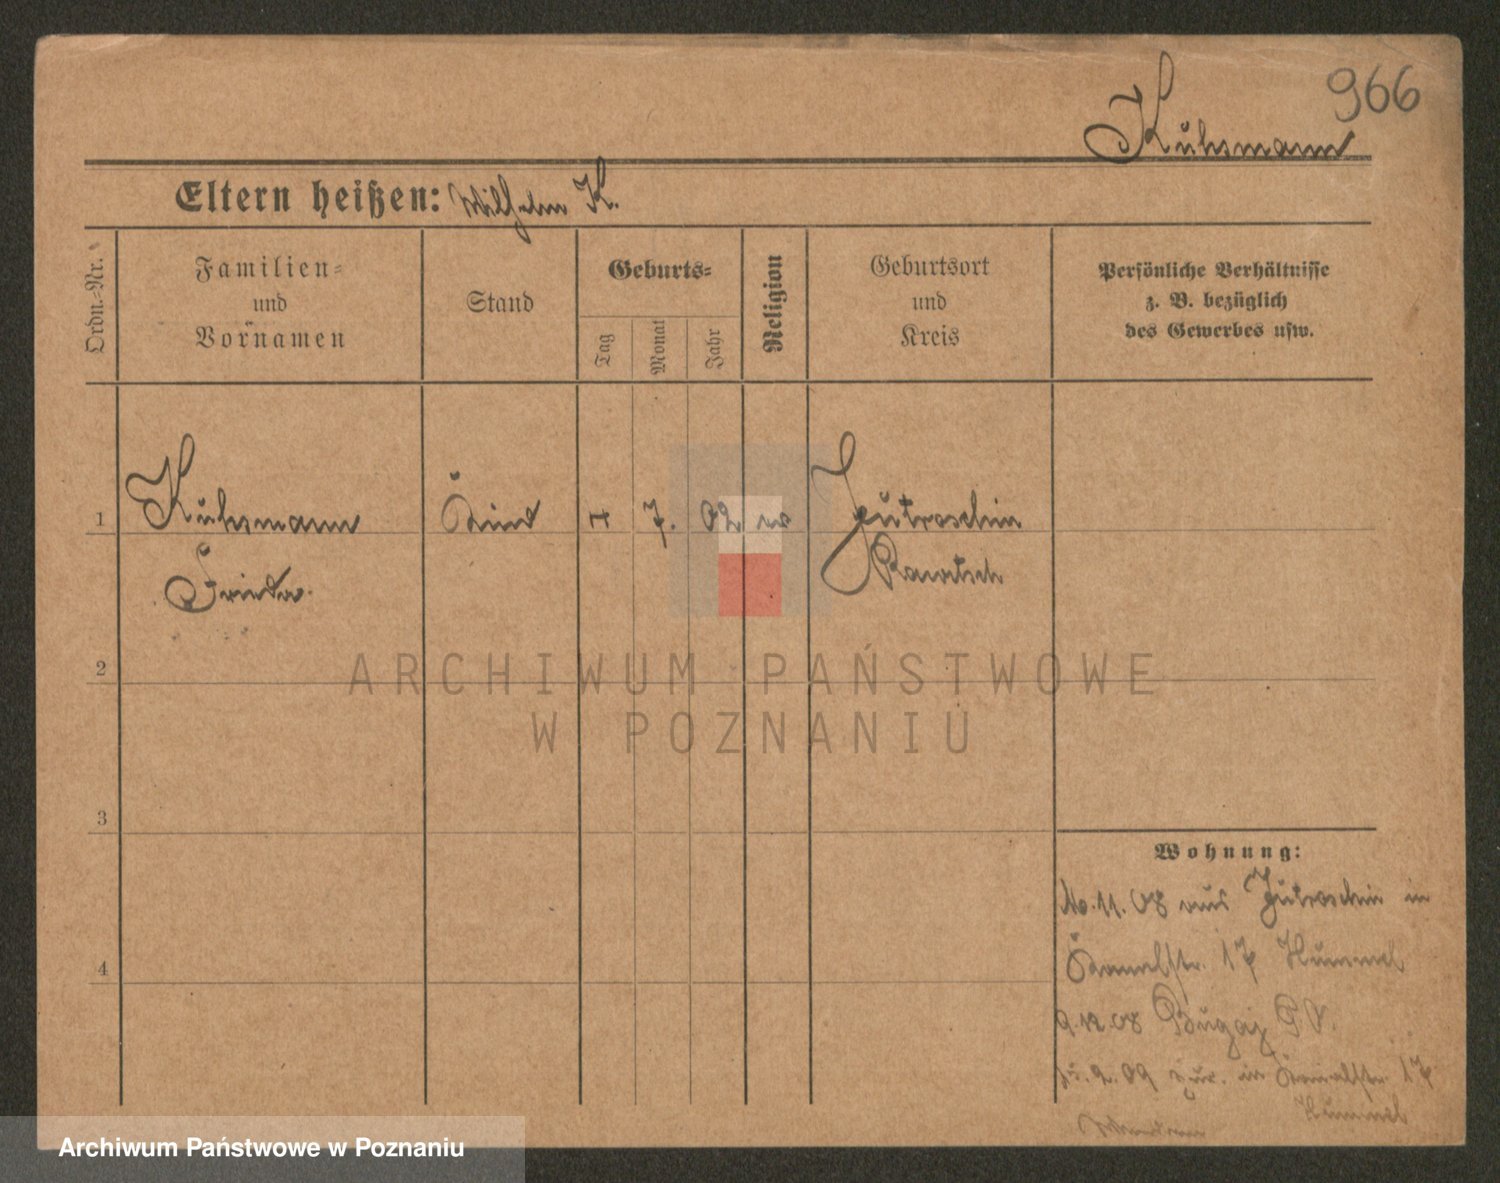 966
Kuhsmann
Eltern heißen: Wilhelm K.
Ordn.-Nr.
Familien-
und
Vornamen
Stand
Geburts-
Tag
Monat
Jahr
Religion
Geburtsort
und
Kreis
Persönliche Verhältnisse
z. B. bezüglich
des Gewerbes usw.
1
Kuhsmann
Frieda
Kind
7. 02
Jutroschin
Rawitsch
2
ARCHIWUM PAŃSTWOWE
W POZNANIU
3
Wohnung:
11. 08 aus Jutroschin in
4
Kanalstr. 17 Hummel
9.12.08 Bugaj
2.09 zur. in Kanalstr. 17
Hummel
Archiwum Państwowe w Poznaniu